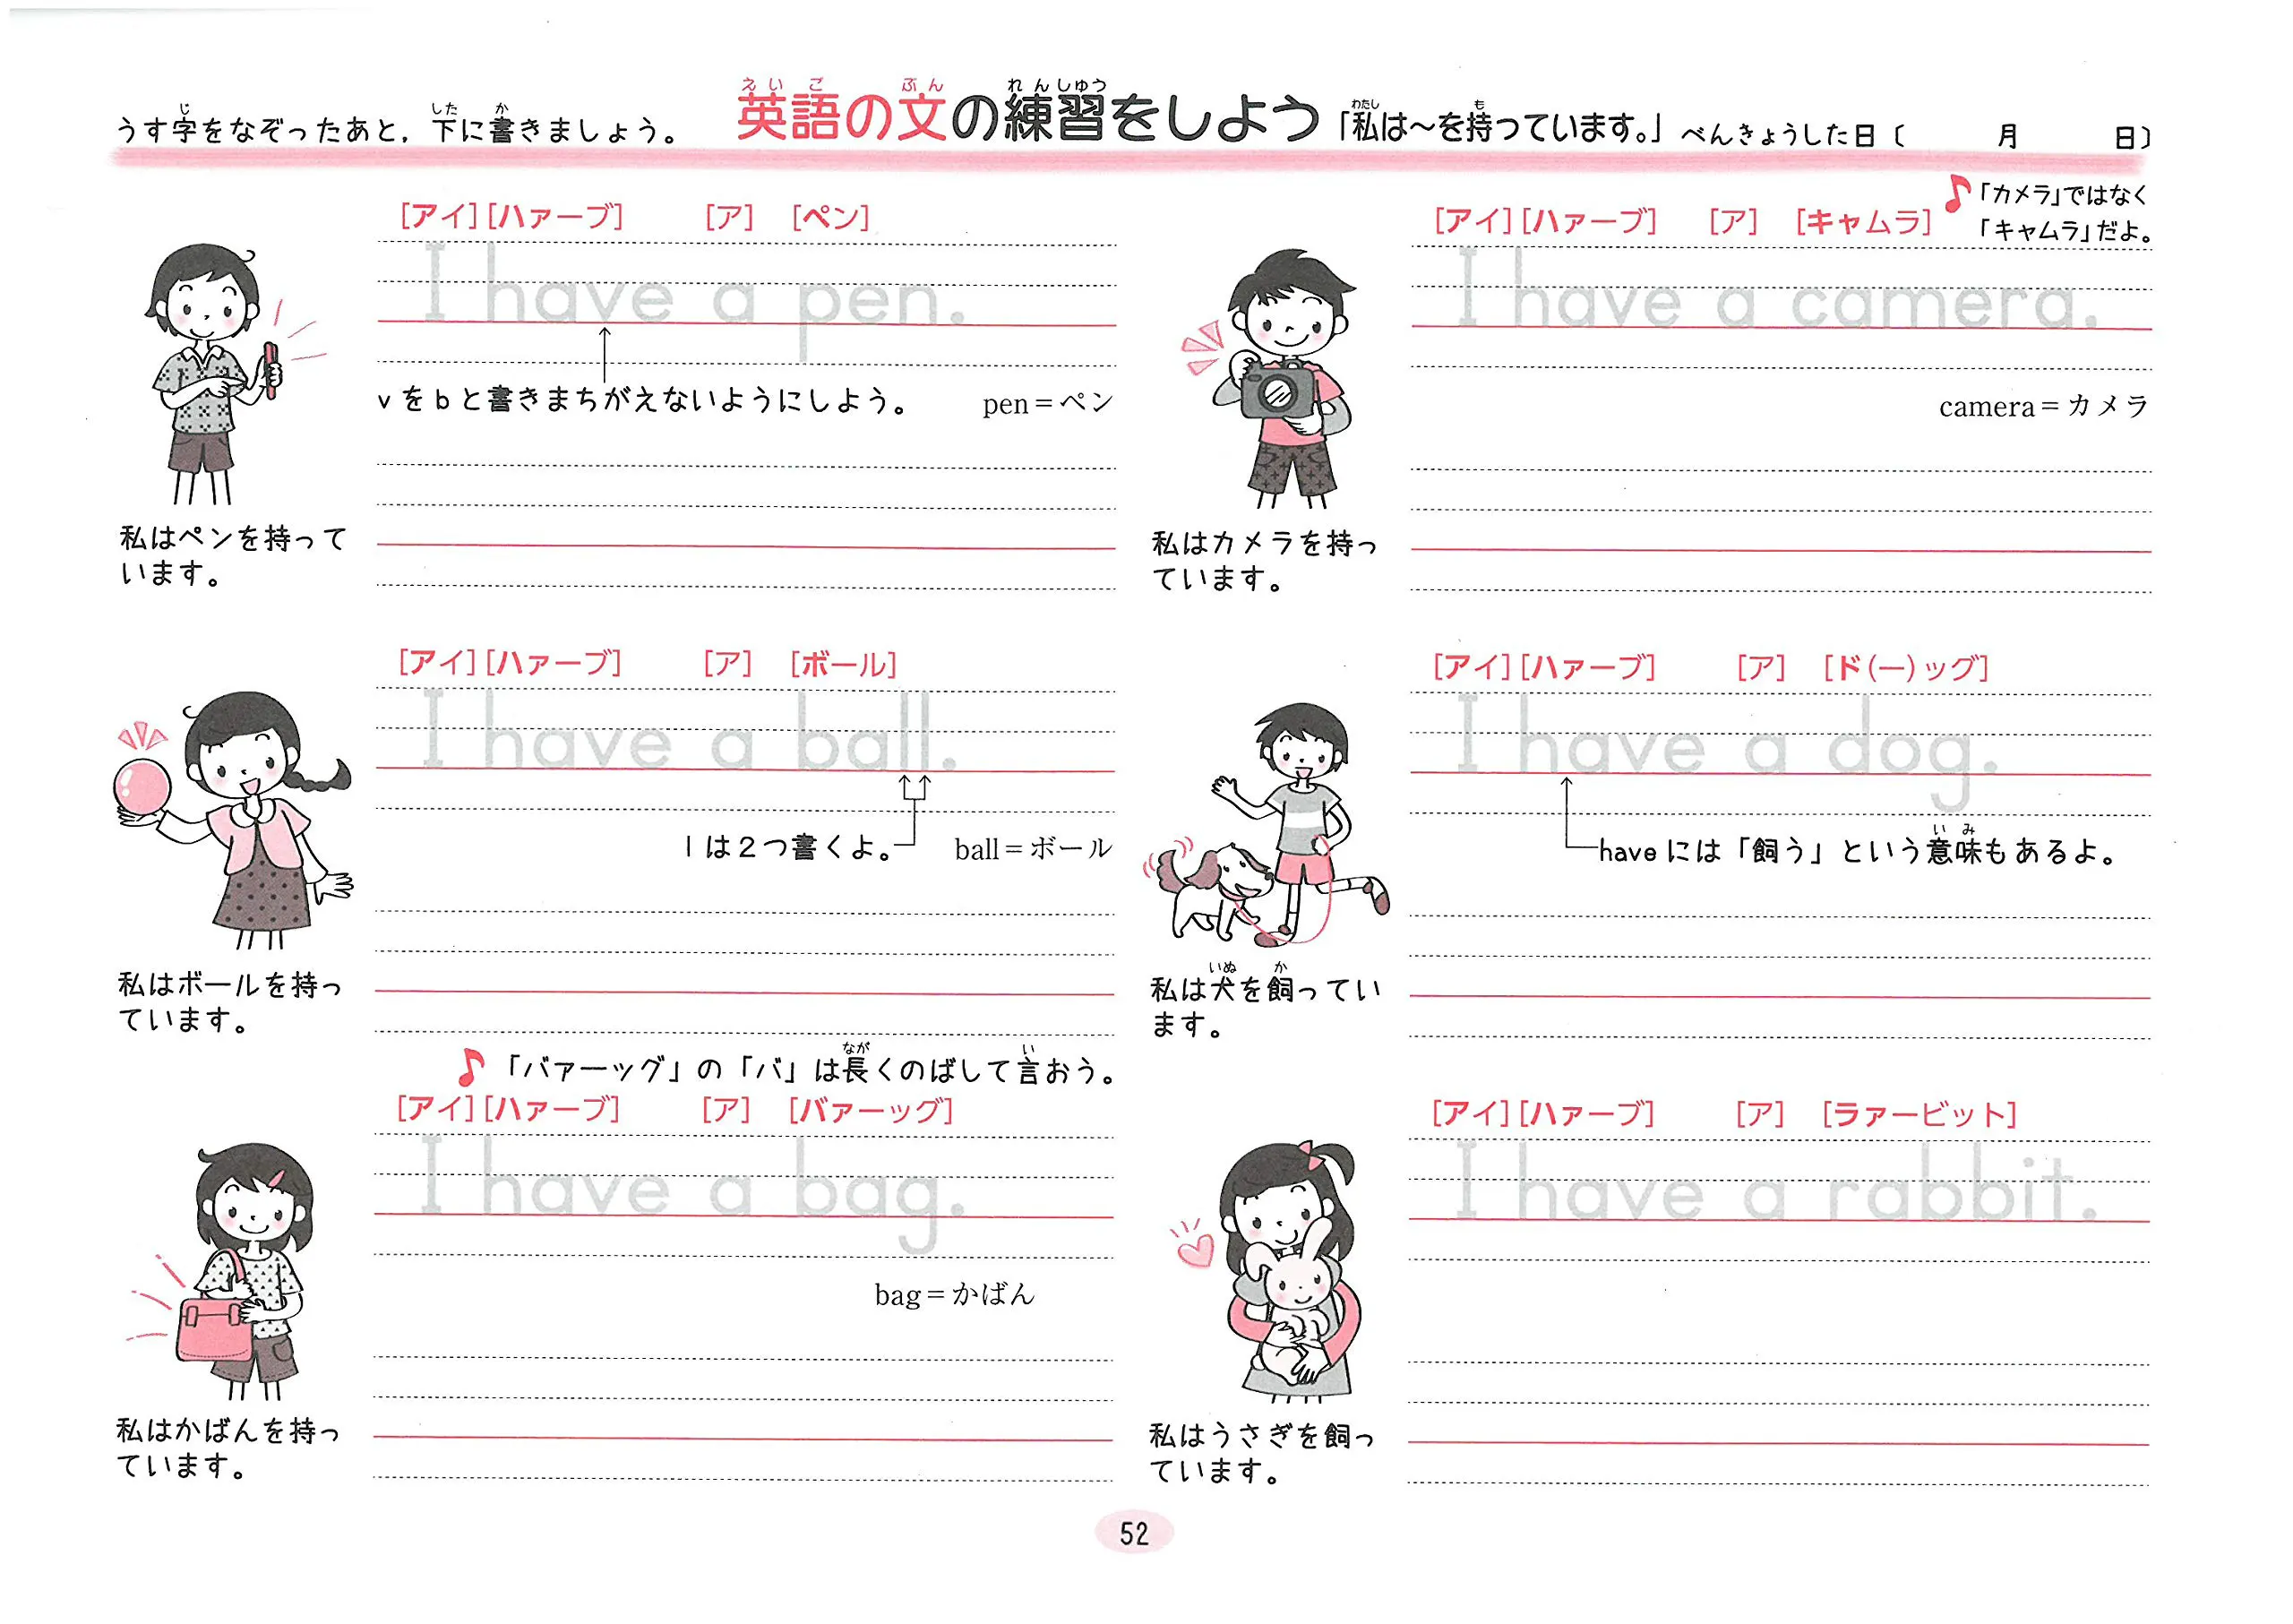 うす字をなぞったあと，下に書きましょう。
英語の文の練習をしよう「私は～を持っています。」べんきょうした日〔　月　日〕
[アイ][ハァーブ] [ア] [ペン]
I have a pen.
vをbと書きまちがえないようにしよう。 pen＝ペン
私はペンを持って
います。
[アイ][ハァーブ] [ア] [ボール]
I have a ball.
lは2つ書くよ。 ball＝ボール
私はボールを持っ
ています。
♪「バァーッグ」の「バ」は長くのばして言おう。
[アイ][ハァーブ] [ア] [バァーッグ]
I have a bag.
bag＝かばん
私はかばんを持っ
ています。
[アイ][ハァーブ] [ア] [キャムラ]
♪「カメラ」ではなく
「キャムラ」だよ。
I have a camera.
camera＝カメラ
私はカメラを持っ
ています。
[アイ][ハァーブ] [ア] [ド(ー)ッグ]
I have a dog.
haveには「飼う」という意味もあるよ。
私は犬を飼ってい
ます。
[アイ][ハァーブ] [ア] [ラァービット]
I have a rabbit.
私はうさぎを飼っ
ています。
52